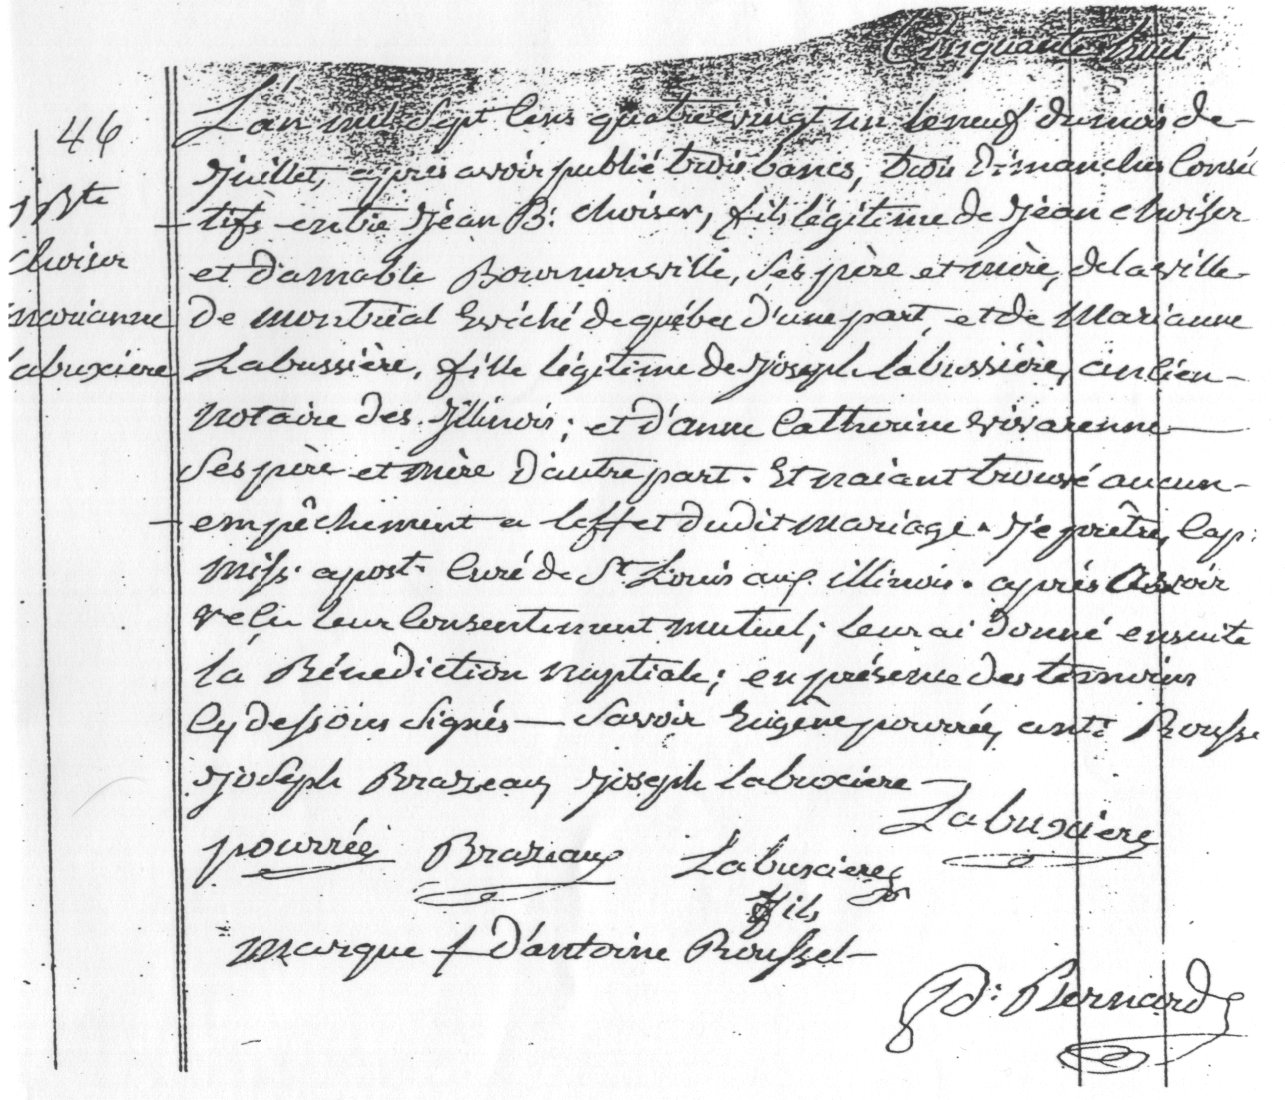 Cinquante huit
46
L'an mil Sept Cens quatrevingt un le neuf du mois de
Juillet, aprés avoir publié trois bancs, trois Dimanches Consécu
J Bte
tifs entre Jéan B: Choiser, fils légitime de Jéan Choiser
Choiser
et d'amable Bournonville, Ses père et mère, de la ville
Marianne
De Montréal Evéché de québec d'une part, et de Marianne
Labuxiere
Labussière, fille légitime de Joseph Labussière, ancien
notaire des Illinois; et d'anne Catherine Vivarenne
Ses père et mère D'autre part. Et n'aiant trouvé aucun
empêchement a l'effet dudit Mariage. Je prêtre, Cap:
Miss. apost. Curé de St Louis aux illinois. aprés Avoir
reçu leur Consentement mutuel; leur ai donné ensuite
la Bénédiction nuptiale; en présence des temoins
Cy dessous Signés — Savoir Eugène pourrée, ant: Rousse
Joseph Brazeau, Joseph labuxiere
Labuxiere
pourrée Brazeau Labuxiere
fils
Marque + d'antoine Roussel
Bernard